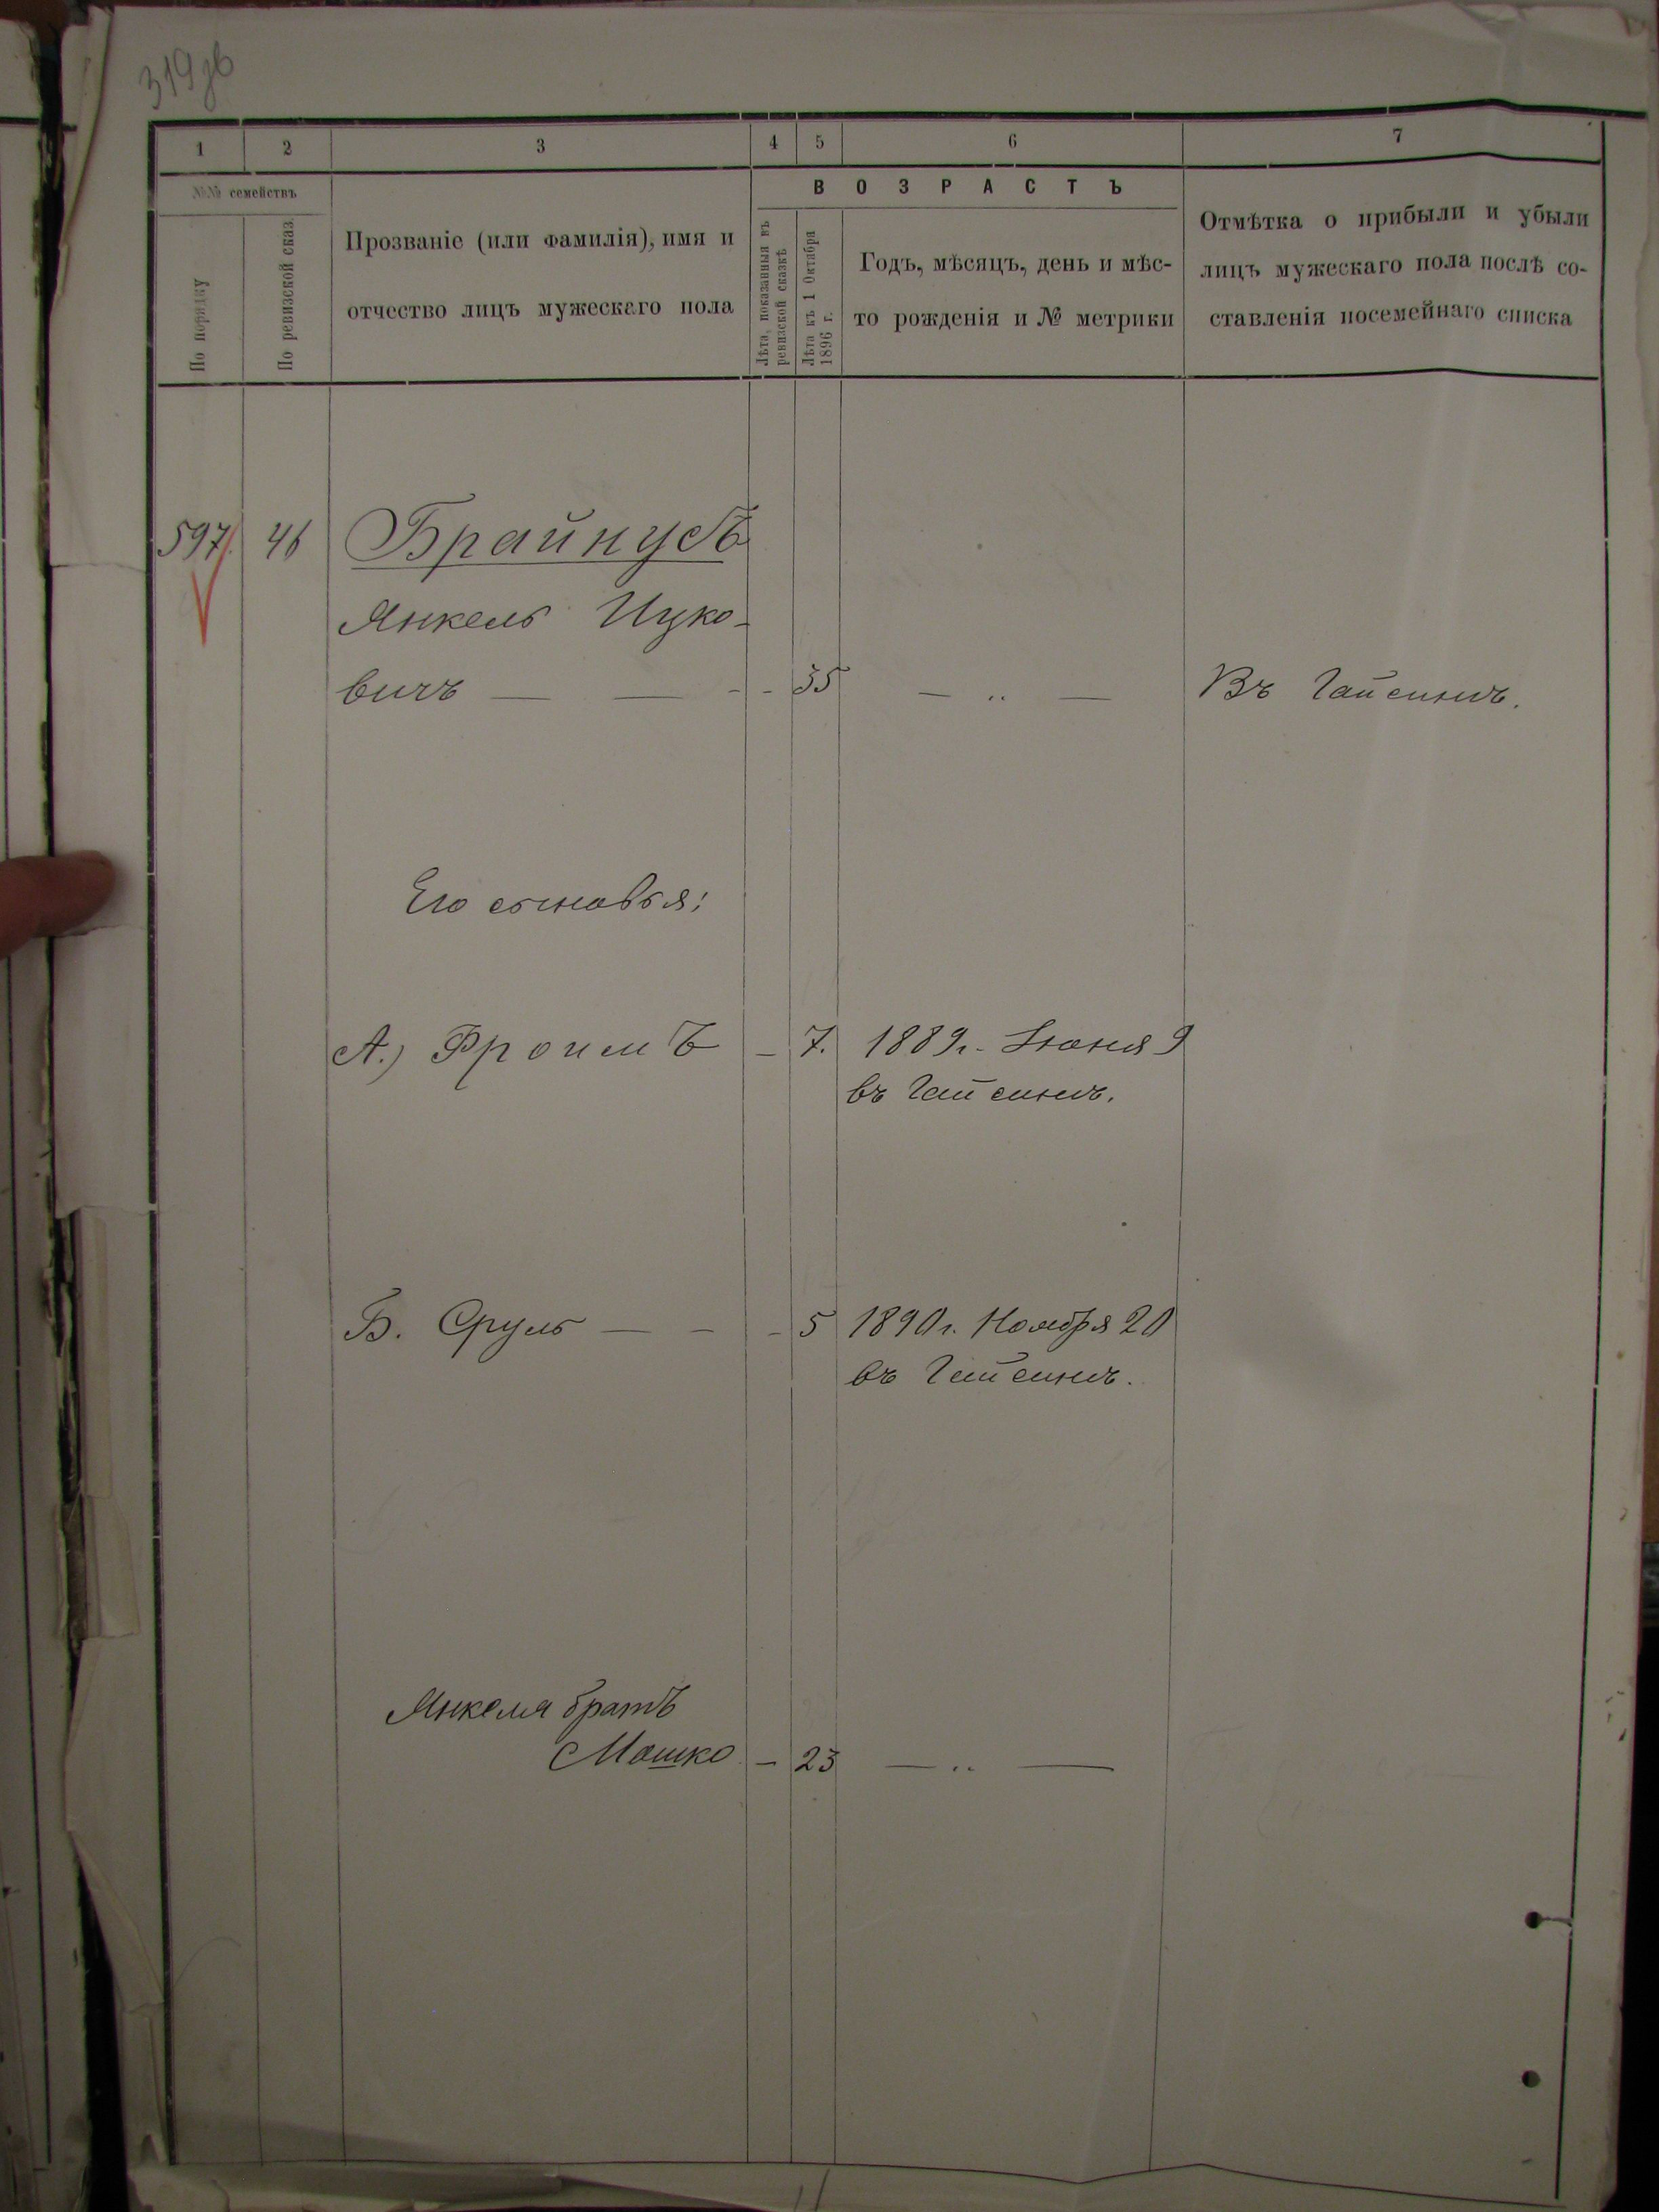 319зв
1 2 3 4 5 6 7
№№ семействъ
По порядку
По ревизской сказ.
Прозваніе (или фамилія), имя и
отчество лицъ мужескаго пола
ВОЗРАСТЪ
Лѣта, показанныя въ
ревизской сказкѣ
Лѣта къ 1 Октября
1896 г.
Годъ, мѣсяцъ, день и мѣс-
то рожденія и № метрики
Отмѣтка о прибыли и убыли
лицъ мужескаго пола послѣ со-
ставленія посемейнаго списка
597. 46 Брайнусъ
Янкель Ицко-
вичъ — — - - 35 — „ — Въ Гайсинѣ.
Его сыновья:
А.) Фроимъ - 7. 1889 г. Іюня 9
въ Гайсинѣ.
Б. Сруль — - - 5 1890 г. Ноября 20
въ Гайсинѣ.
Янкеля братъ
Мошко - 23 — „ —